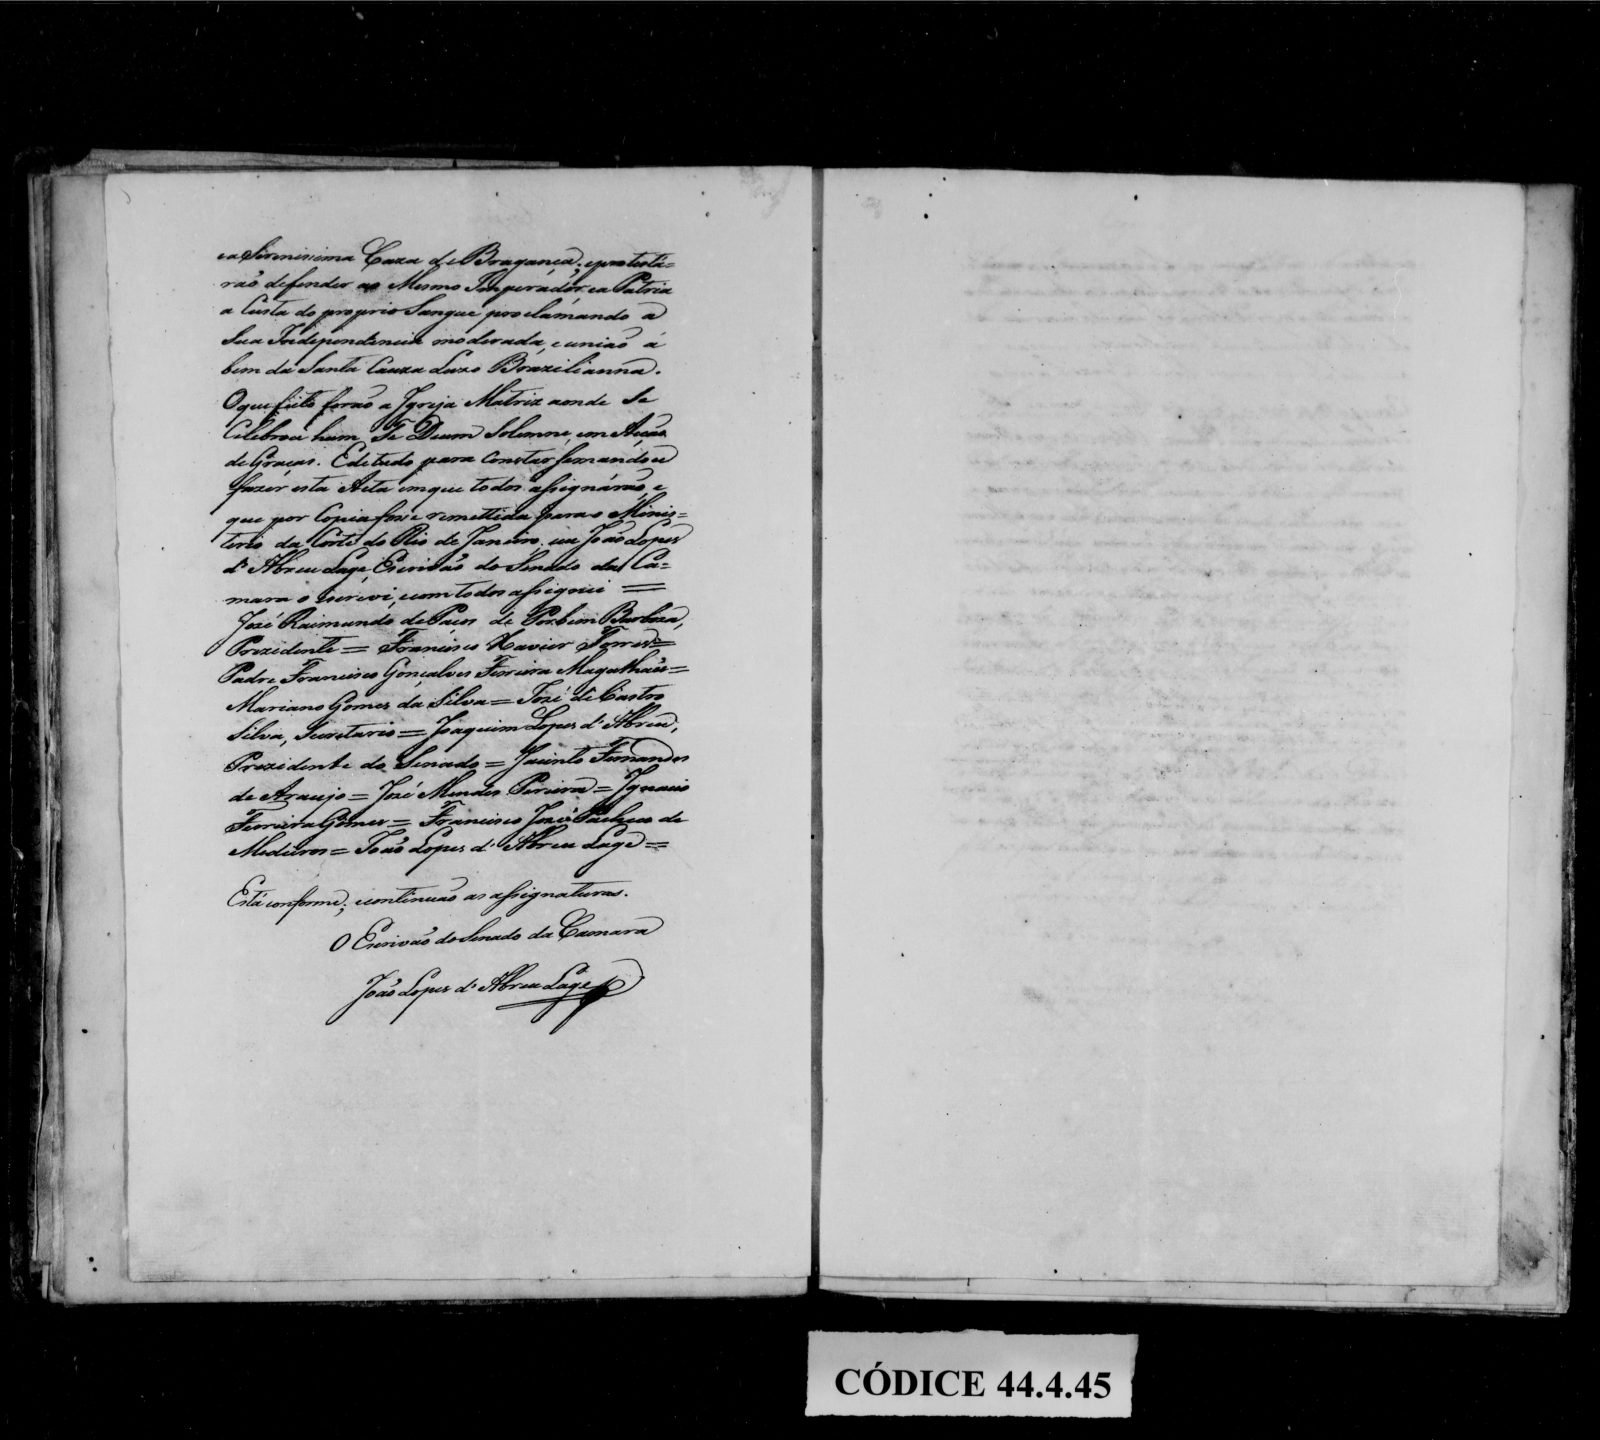 e a Serenissima Caza de Bragança; e protestá=
rão defender ao Mesmo Imperador, e a Patria
a Custa do proprio Sangue proclamando a
Sua Independencia moderada, e união á
bem da Santa Cauza Luzo Brazilianna.
O que feito forão a Igreja Matriz aonde Se
Celebrou hum Te Deum Solemne, em Acção
de Graças. E de tudo para Constar Se mandou
fazer esta Acta em que todos assignárão, e
que por Copia fosse remettida para o Minis=
terio da Corte do Rio de Janeiro. eu João Lopes
d'Abreu Lage, Escrivão do Senado da Ca=
mara o escrevi, e com todos assignei =
José Raimundo de Paços de Porbem Barboza,
Prezidente = Francisco Xavier Torres =
Padre Francisco Gonçalves Ferreira Magalhães =
Mariano Gomes da Silva = José de Castro
Silva, Secretario = Joaquim Lopes d'Abreu,
Prezidente do Senado = Jacinto Fernandes
de Araujo = José Mendes Pereira = Ignacio
Ferreira Gomes = Francisco José Pacheco de
Medeiros = João Lopes d'Abreu Lage =
Está conforme; e continuão as assignaturas.
O Escrivão do Senado da Camara
João Lopes d'Abreu Lage
CÓDICE 44.4.45